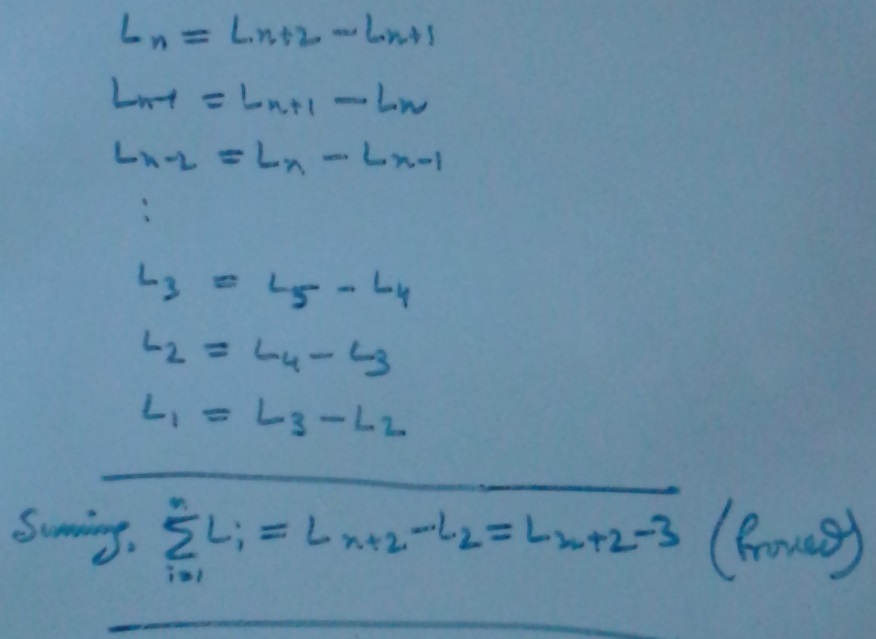 Lₙ = Lₙ₊₂ - Lₙ₊₁
Lₙ₋₁ = Lₙ₊₁ - Lₙ
Lₙ₋₂ = Lₙ - Lₙ₋₁
⋮
L₃ = L₅ - L₄
L₂ = L₄ - L₃
L₁ = L₃ - L₂
Suming, ∑ⁿᵢ₌₁ Lᵢ = Lₙ₊₂ - L₂ = Lₙ₊₂ - 3 (Proved)